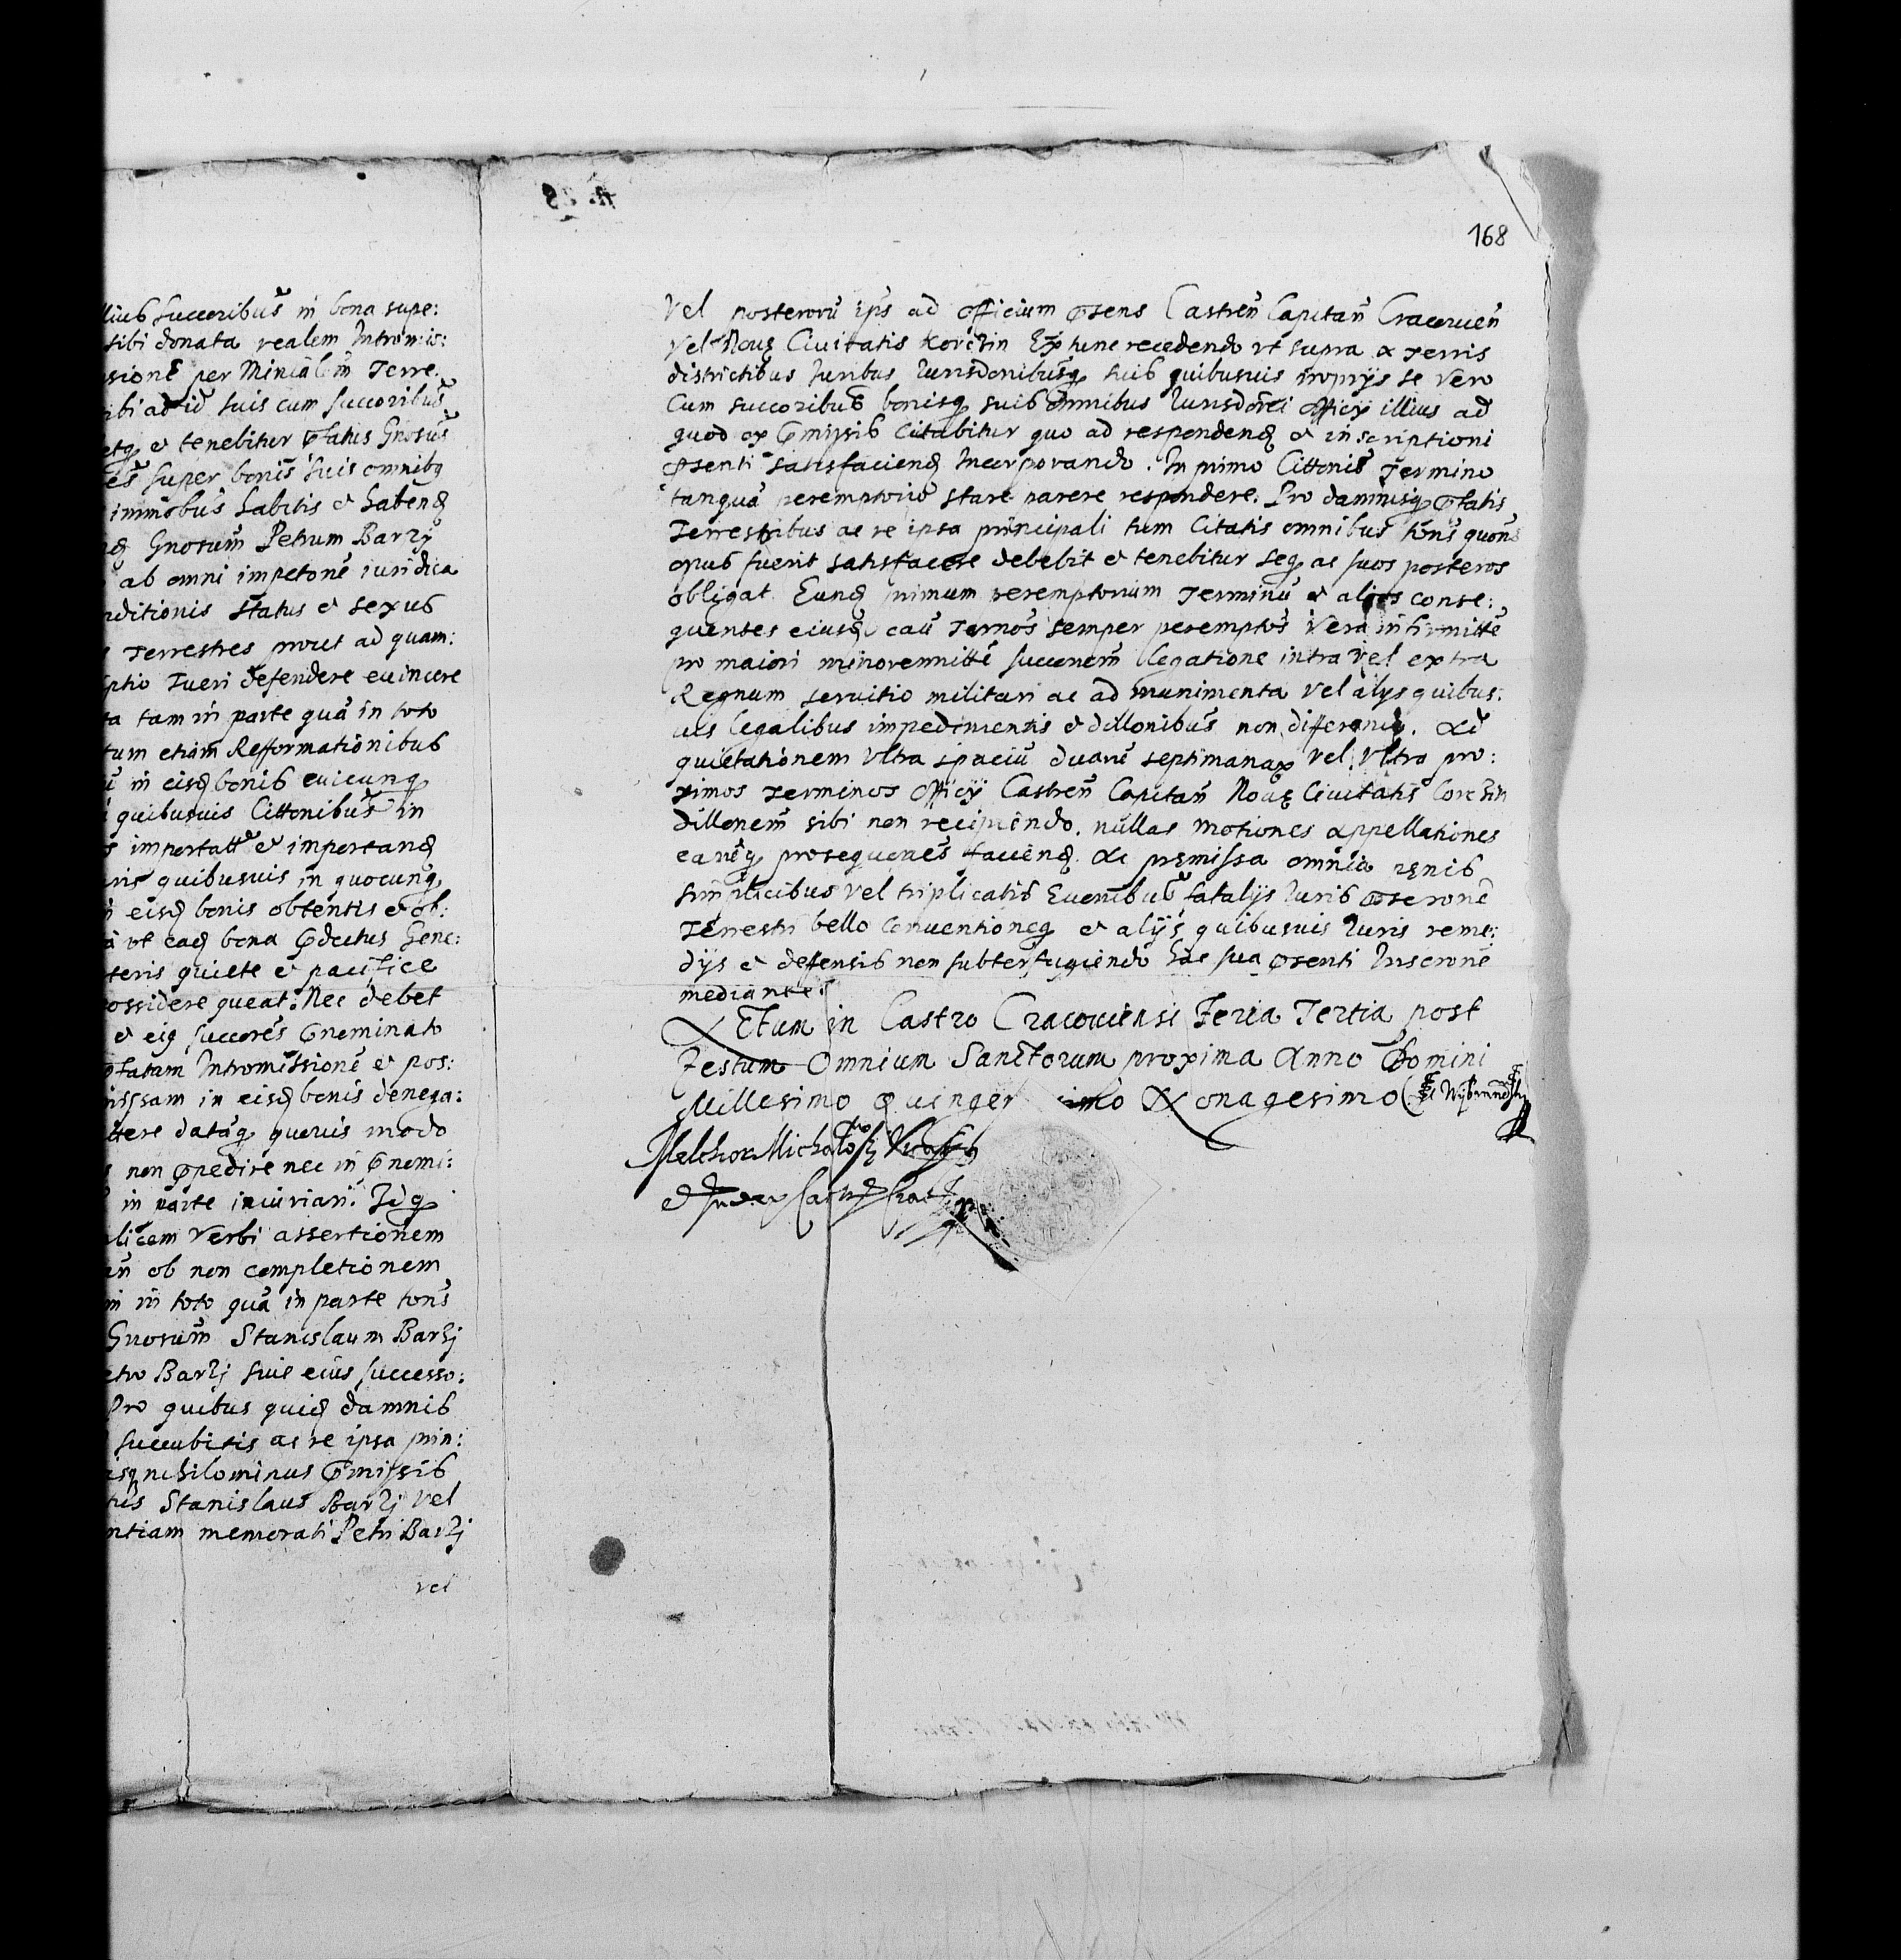 168
lius succoribus in bona supe:
sibi donata realem Intromis:
sione per Minialem Terre:
ibi ad id suis cum succoribus
etq et tenebitur pfatus Gnosus
es super bonis suis omnibq
immobus habitis et habend
Gnosum Petrum Barzj
ab omni impetone iuridica
nditionis status et sexus
Terrestres prout ad quam:
ptio Tueri defendere euincere
ta tam in parte qua in toto
tum etiam Refformationibus
in eisd bonis cuicunq
quibusuis Cittonibus in
importatt et importand
quibusuis in quocunq
eisd bonis obtentis et ob:
ut ead bona pdictus Gene:
teris quiete et pacifice
ossidere queat. Nec debet
et eiq succores pneminato
pfatam Intromissione et pos:
issam in eisd bonis denega:
ittere dataq quouis modo
non ppedire nec in pnemi:
in parte iniuriari. Idq
licem verbi assertionem
ob non completionem
in toto qua in parte tons
Gnosum Stanislaum Barzj
etro Barzj suis eius successo:
Pro quibus quid damnis
succubitis ac re ipsa prin:
isq nihilominus pmissis
tus Stanislaus Barzj vel
ntiam memorati Petri Barzj
vel
Vel posteroru eps ad officium psens Castren Capitan Cracouien
Vel Noue Ciuitatis Korczin Ex tunc recedendo ut supra a Terris
districtibus Iuribus Iurisdonibusq suis quibusuis proprijs se vero
Cum succoribus bonisq suis omnibus Iurisdoni officij illius ad
quod ex pmissis Citabitur quo ad respondend et inscriptioni
psenti satisfaciend Incorporando. In primo Cittonis Termino
tanqua peremptorio stare parere respondere. Pro damnisq pfatis
Terrestribus ac re ipsa principali tum Citatis omnibus tons quons
opus fuerit satisfacere debebit et tenebitur seq ac suos posteros
obligat. Eund primum peremptorium Terminu et alios conse:
quentes eiusd cau Ternos semper perempos Vera infirmitte
pro maiori minorennitte succonem Legatione intra vel extra
Regnum seruitio militari ac ad munimenta vel alys quibus:
uis legalibus impedimentis et dillonibus non differend. Ad
quietationem Ultra spaciu duaru septimanar vel Ultra pro:
ximos Terminos officij Castren Capitan Noue Ciuitatis Corczin
dillonem sibi non recipiendo. nullas motiones appellationes
earuq prosequones faciend. Ac premissa omnia penis
simplicibus vel triplicatis Euenibus fatalijs Iuris pscrone
Terrestri bello Conuentioneq et alijs quibusuis Iuris reme:
dijs et defensis non subterfugiendo hac sua psenti Inscrone
mediante.
Actum in Castro Cracouiensi Feria Tertia post
Festum Omnium Sanctorum proxima Anno Domini
Millesimo Quingen imo Nonagesimo
Melchior Michalo
et Judex